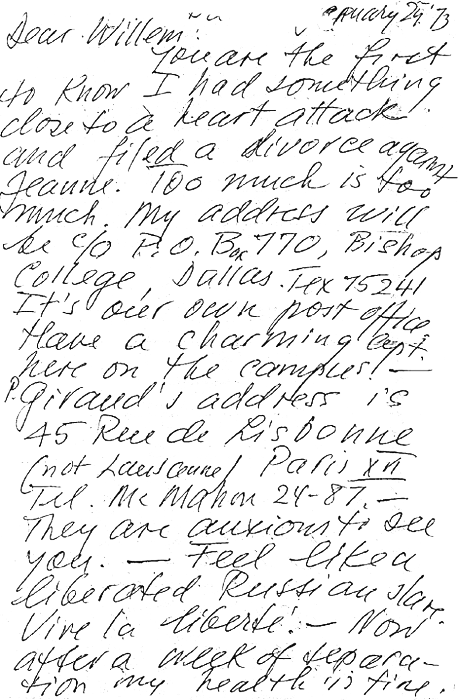 January 29, '73
Dear Willem:
You are the first
to know I had something
close to a heart attack
and filed a divorce against
Jeanne. Too much is too
much. My address will
be c/o P.O. Box 770, Bishop
College, Dallas. Tex 75241
It's our own post office
Have a charming apt.
here on the campus! —
P. Giraud's address is
45 Rue de Lisbonne
(not Lausanne) Paris
Tel. Mc Mahon 24-87. —
They are anxious to see
you. — Feel like a
liberated Russian slave.
Vive la liberté! — Now
after a week of separa-
tion my health is fine.